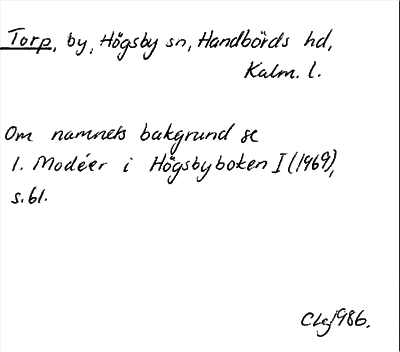 Torp, by, Högsby sn, Handbörds hd,
Kalm. l.
Om namnets bakgrund se
I. Modéer i Högsbyboken I (1969),
s. 61.
1986.